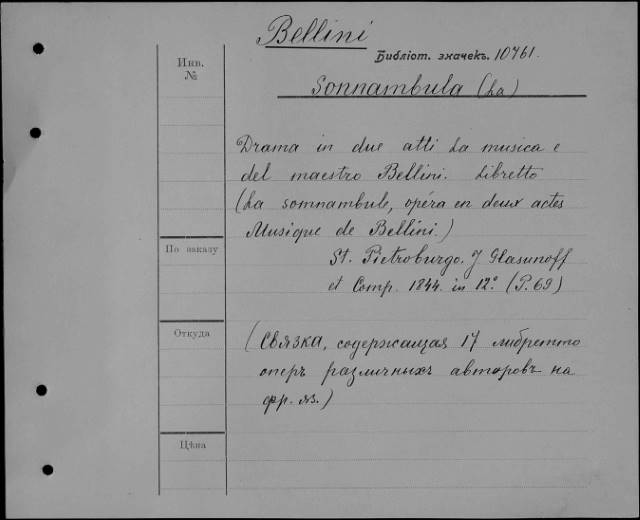 Bellini
Библіот. значекъ. 10761.
Инв.
№
Sonnambula (La)
Drama in due atti La musica e
del maestro Bellini. Libretto
(La somnambule, opéra en deux actes
Musique de Bellini.)
По заказу
St. Pietroburgo. J. Glasunoff
et Comp. 1844. in 12º (P. 69)
Откуда
(Связка, содержащая 17 либретто
оперъ различныхъ авторовъ на
фр. яз.)
Цѣна